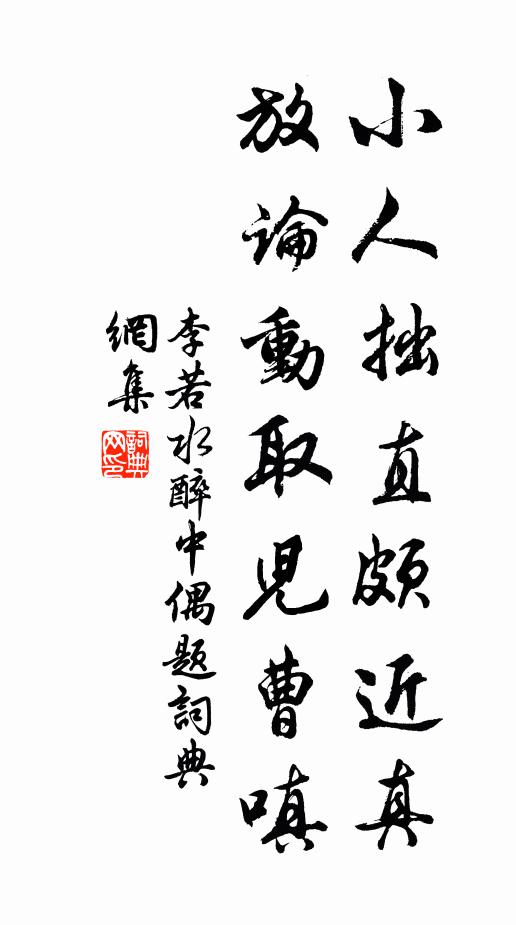 小人拙直頗近真
放論動取児曹嗔
李若水醉中偶題詞典
網集
詞典網印